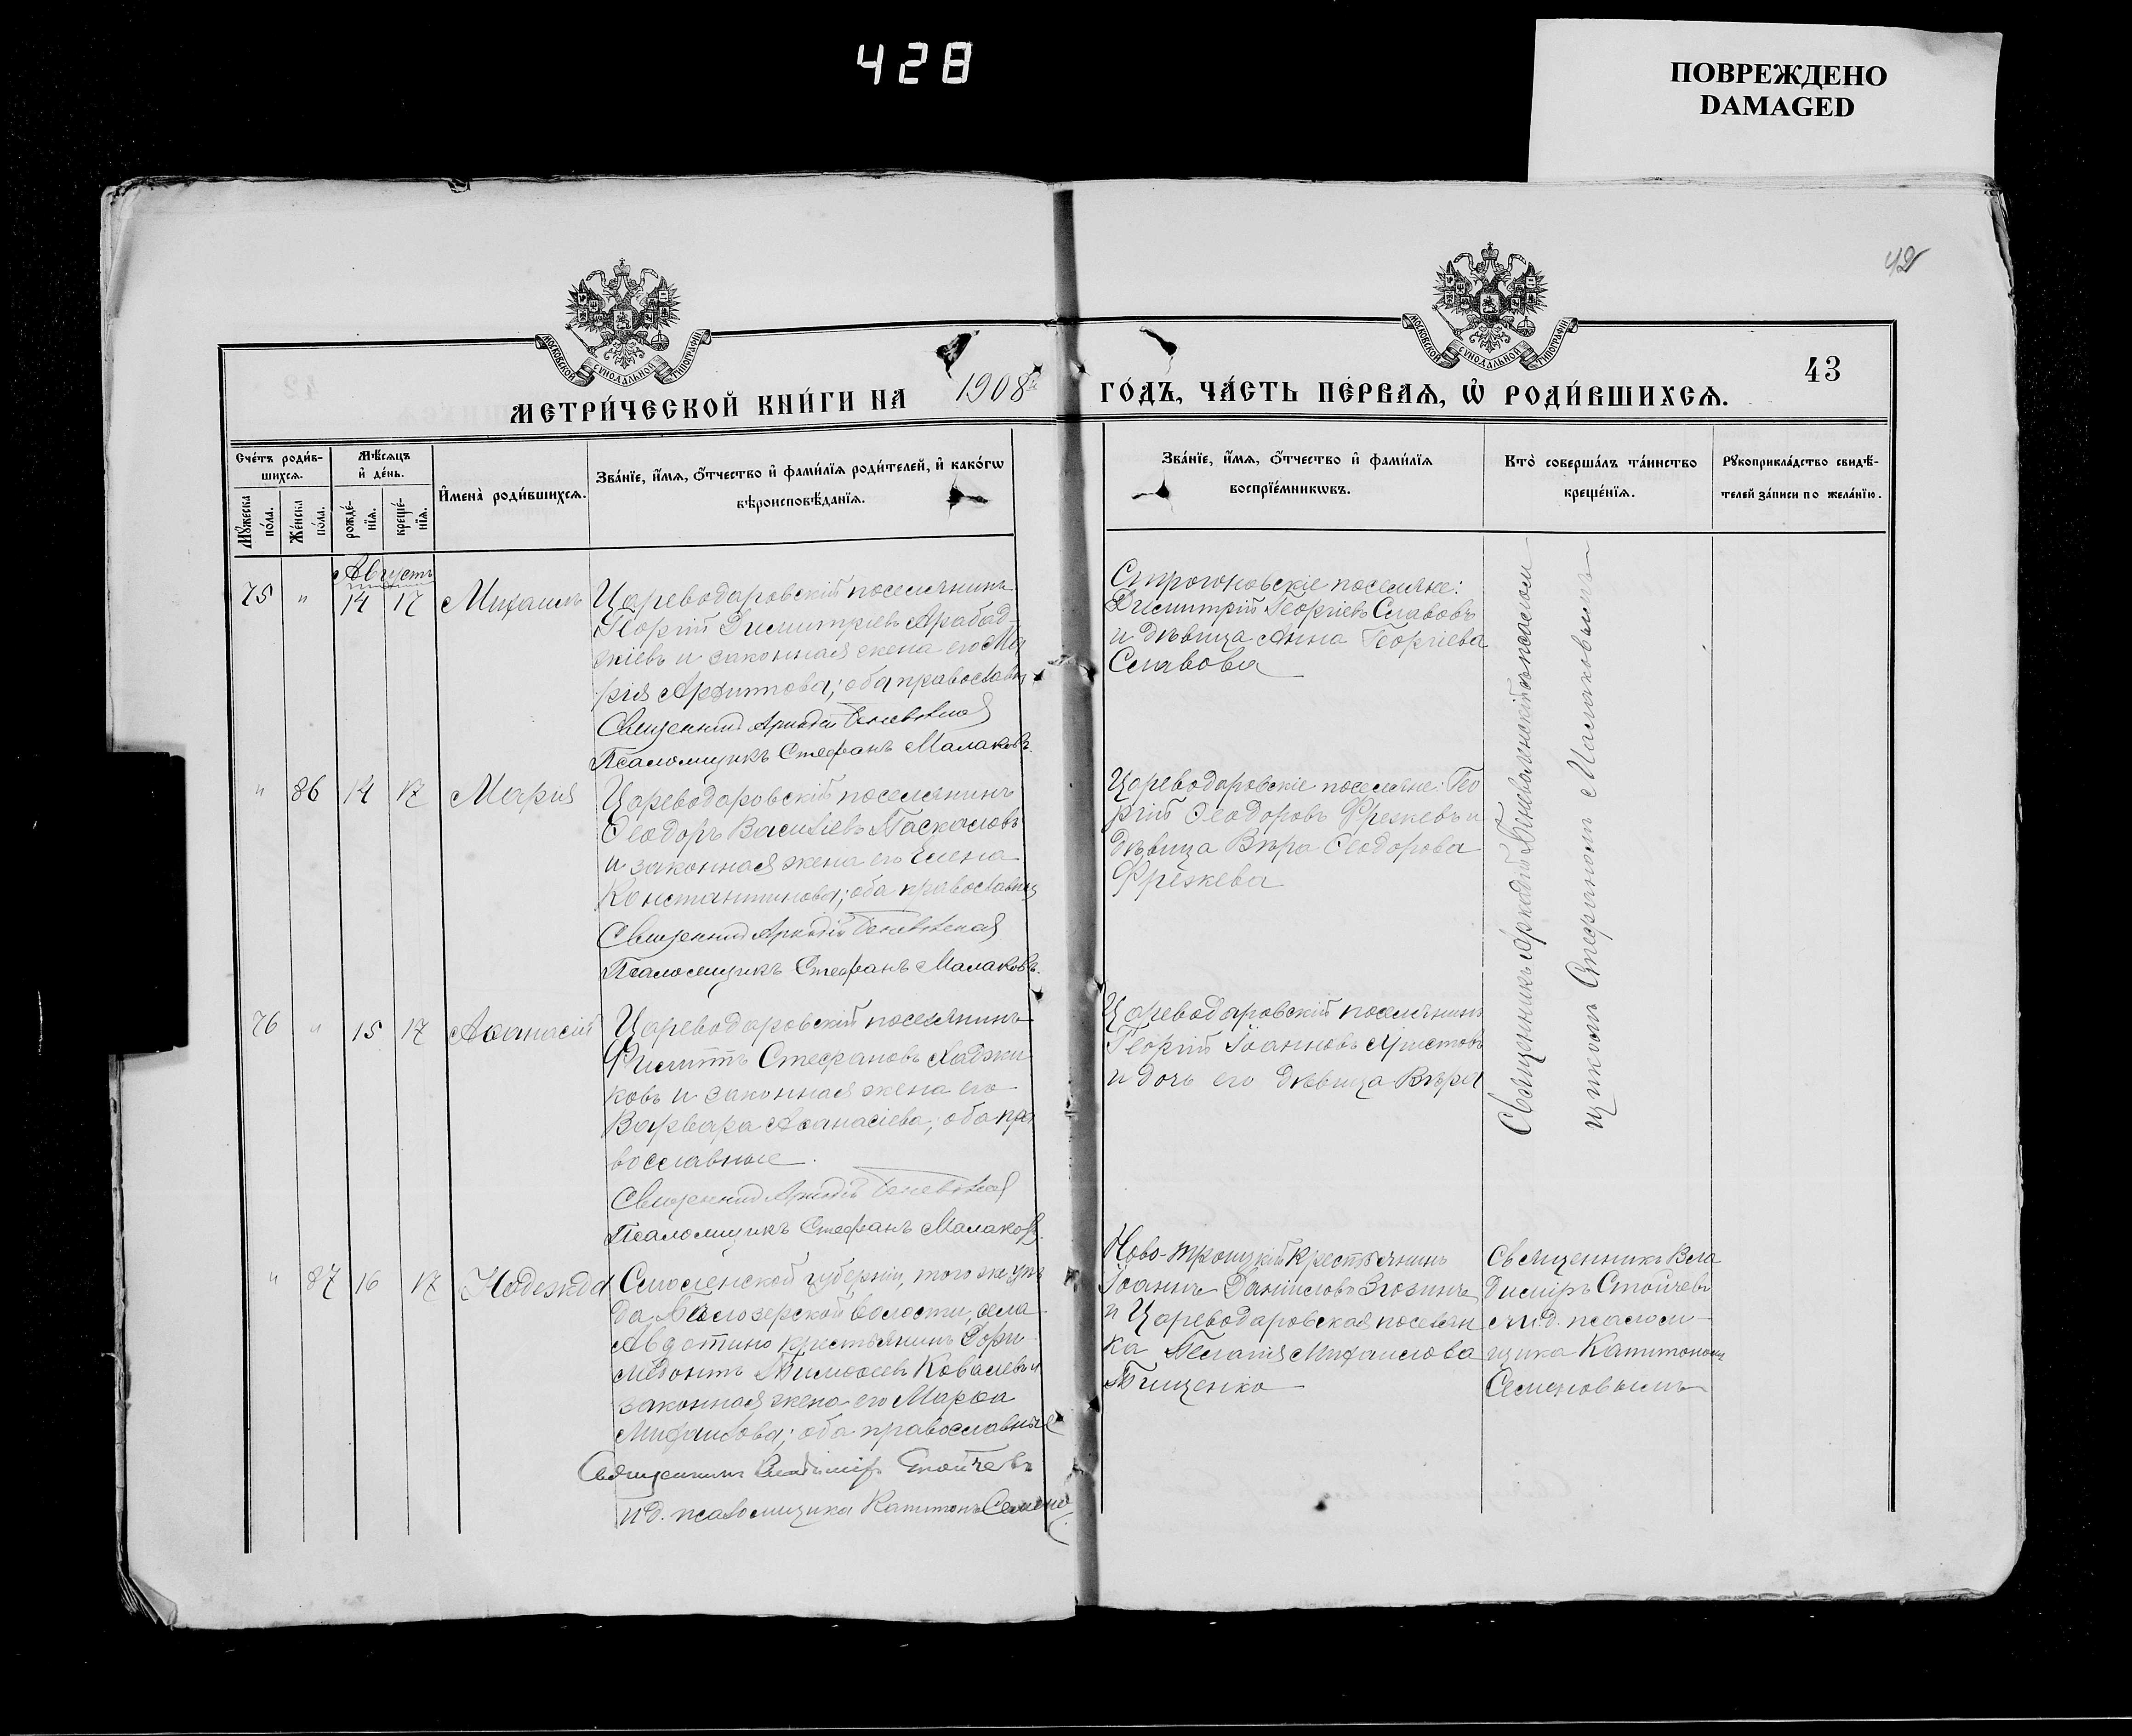 428
ПОВРЕЖДЕНО
DAMAGED
42
МОСКОВСКОЙ СѴНОДАЛЬНОЙ ТИПОГРАФІИ
МОСКОВСКОЙ СѴНОДАЛЬНОЙ ТИПОГРАФІИ
43
МЕТРИ́ЧЕСКОЙ КНИ́ГИ НА 1908 ГО́ДЪ, ЧА́СТЬ ПЕ́РВАѦ, Ѡ҆ РОДИ́ВШИХСѦ.
Сче́тъ роди́в-
шихсѧ.
Мꙋ́жеска по́ла.
Же́нска по́ла.
Мѣ́сѧцъ
и҆ де́нь.
рожде́-
нїѧ.
креще́-
нїѧ.
И҆мена̀ роди́вшихсѧ.
Зва́нїе, и҆́мѧ, ѻ҆́тчество и҆ фами́лїѧ роди́телей, и҆ како́гѡ
вѣроисповѣ́данїѧ.
Зва́нїе, и҆́мѧ, ѻ҆́тчество и҆ фами́лїѧ
воспрїе́мникѡвъ.
Кто̀ соверша́лъ та́инство
креще́нїѧ.
Рꙋкоприкла́дство свидѣ́-
телей за́писи по жела́нїю.
Августъ
75 " 14 17 Михаилъ
Цареводаровскій поселянинъ
Георгій Димитріевъ Арабад-
жіевъ и законная жена его Ма
рія
оба православн
Священникъ Аркадій
Псаломщикъ Стефанъ Малаковъ.
Строгоновскіе поселяне:
Димитрій Георгіевъ Славовъ
и дѣвица Анна Георгіева
Славова
Священникъ Аркадій съ псалом
щикомъ Стефаномъ Малаковымъ
" 86 14 17 Марія
Цареводаровскій поселянинъ
Ѳеодоръ Василіевъ Паскаловъ
и законная жена его Елена
Константинова; оба православны
Священникъ Аркадій
Псаломщикъ Стефанъ Малаковъ.
Цареводаровскіе поселяне: Гео
ргій Ѳеодоровъ Фрежевъ и
дѣвица Вѣра Ѳеодорова
Фрежева
76 " 15 17 Аѳанасій
Цареводаровскій поселянинъ
Филиппъ Стефановъ Хаджи
ковъ и законная жена его
Варвара Аѳанасіева; оба пра
вославные
Священникъ Аркадій
Псаломщикъ Стефанъ Малаковъ.
Цареводаровскій поселянинъ
Георгій Іоанновъ Христовъ
и дочь его дѣвица Вѣра
" 87 16 17 Надежда
Смоленской губерніи, того же уѣз
да, волости, села
Авдотино крестьянинъ Дори
медонтъ Тимоѳеевъ Ковалевъ и
законная жена его Марѳа
Михаилова; оба православные
Священникъ Владиміръ Стойчевъ
и.д. псаломщика Капитонъ Семено
Ново-Троицкій крестьянинъ
Іоаннъ Даніиловъ
и Цареводаровская поселян
ка Пелагія Михаилова
Тищенко
Священникъ Вла
диміръ Стойчевъ
съ и.д. псалом-
щика Капитономъ
Семеновымъ